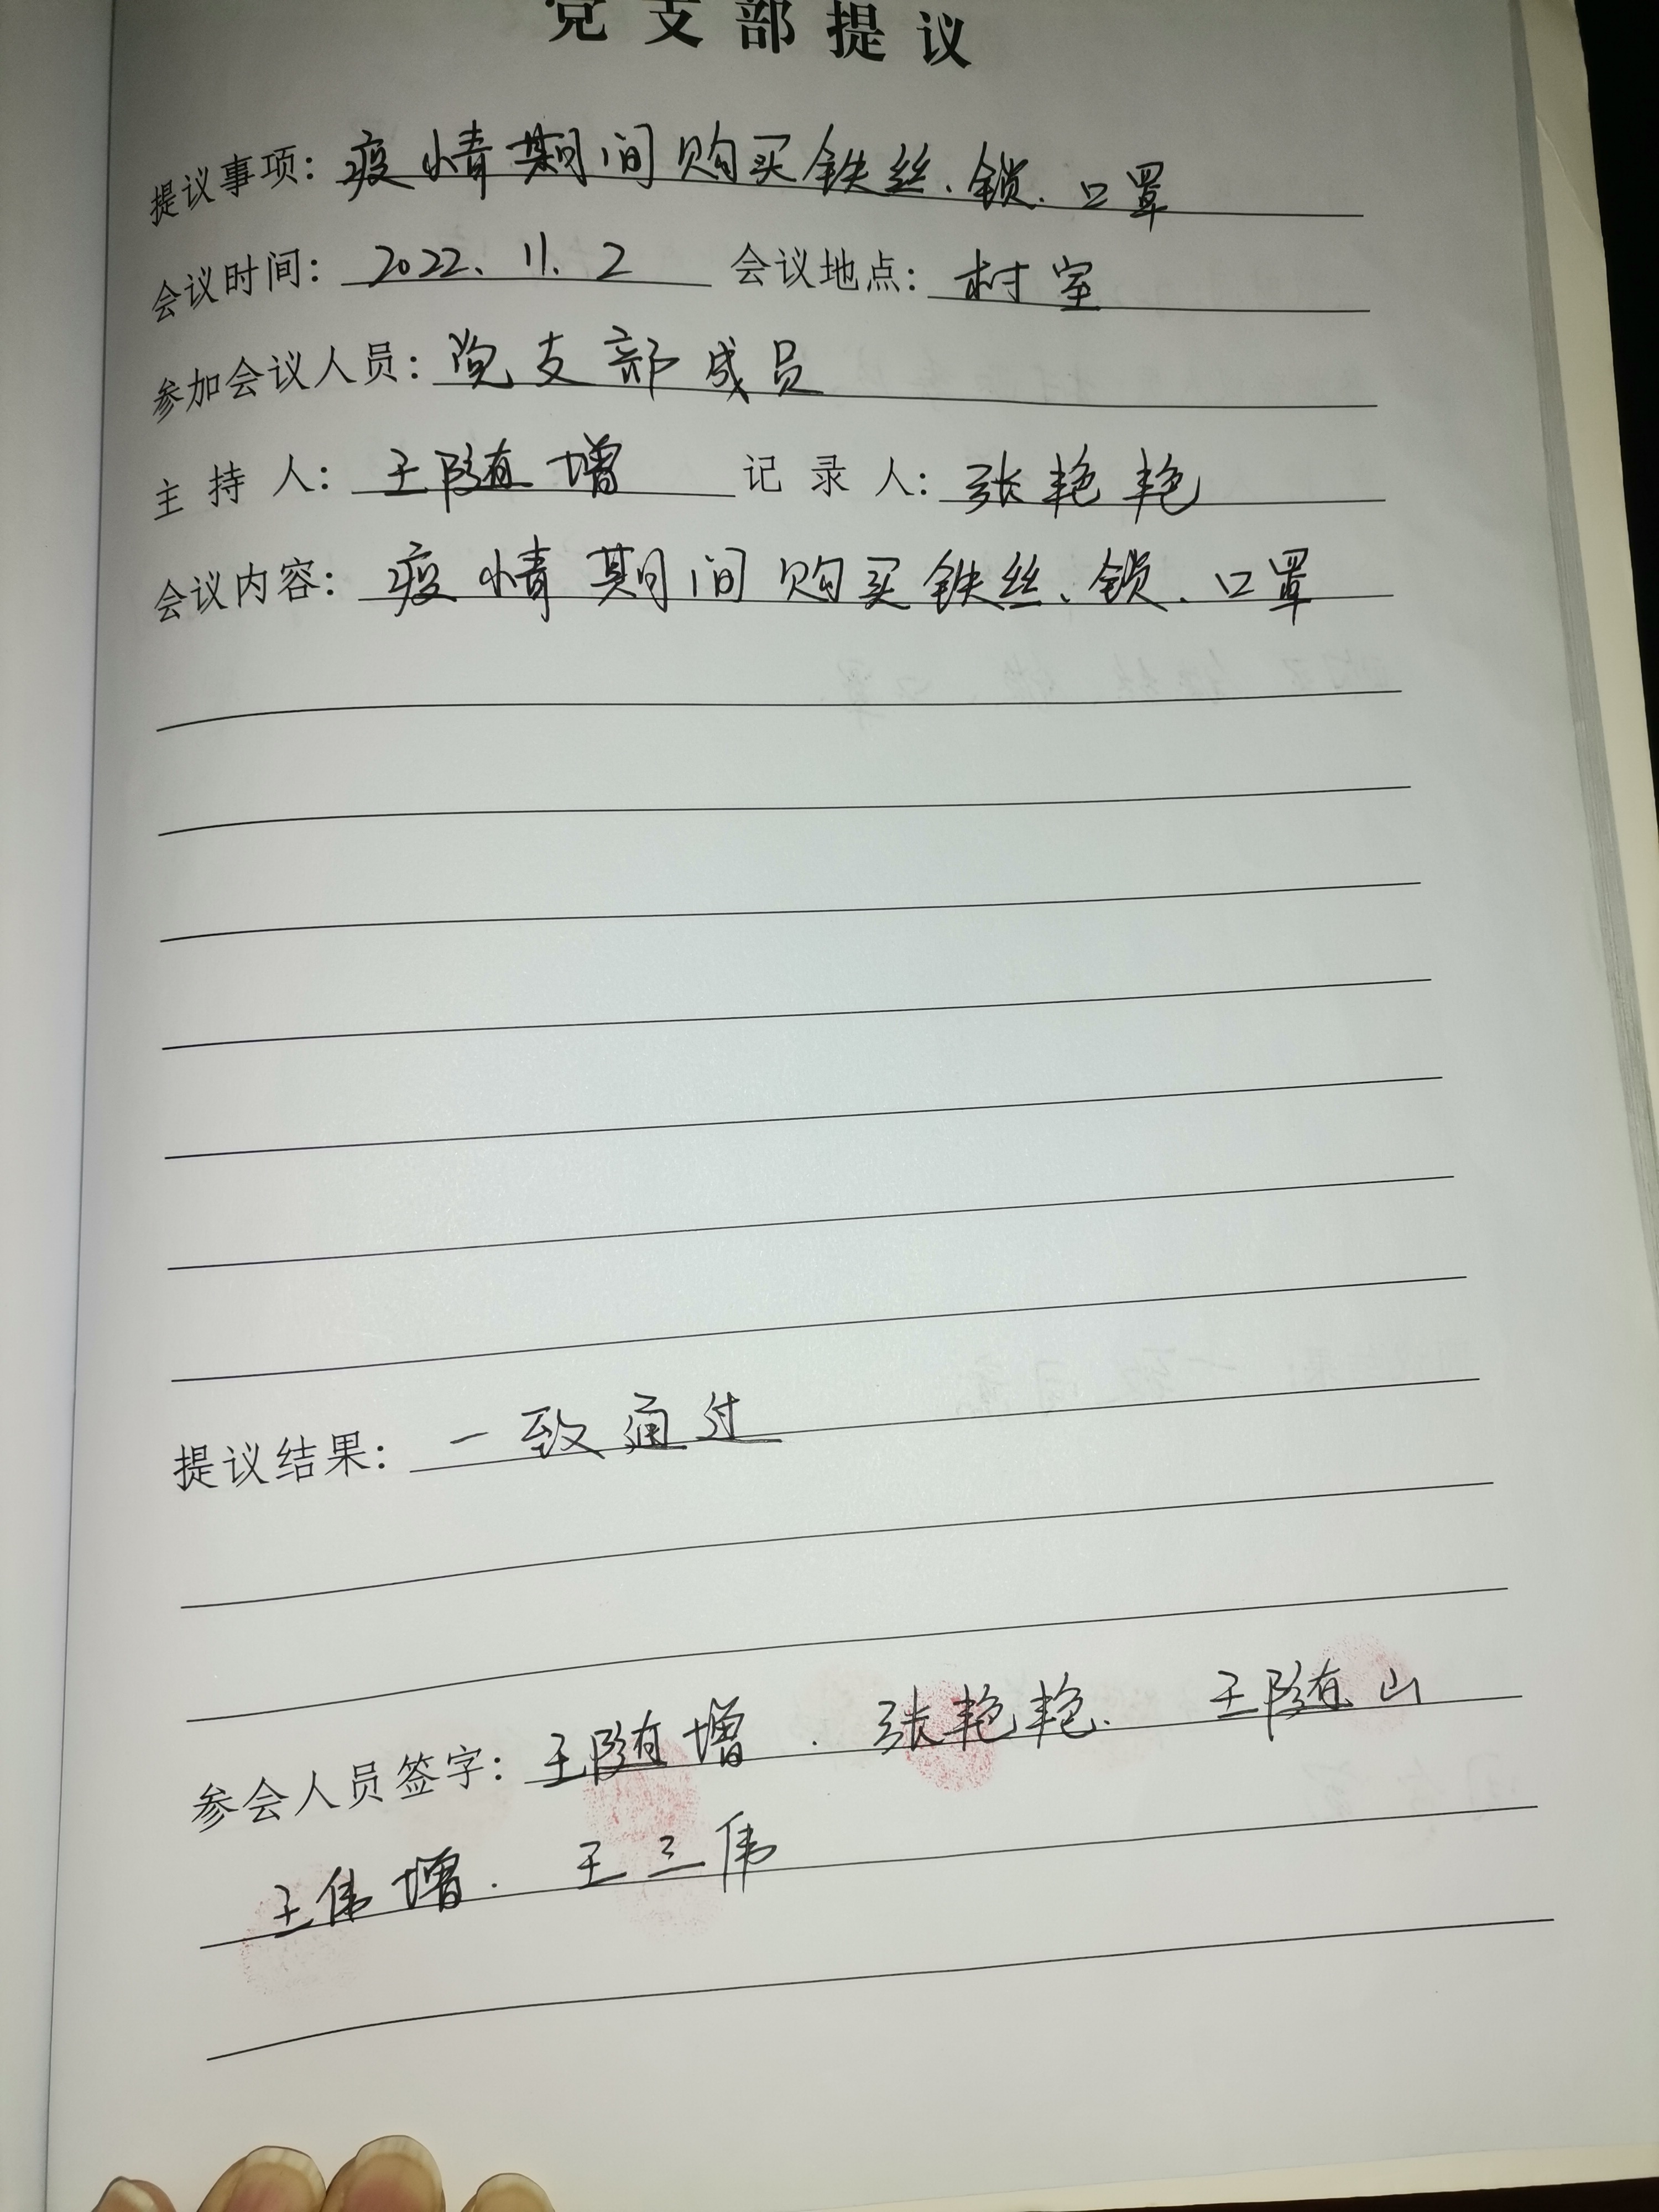 党支部提议
提议事项：疫情期间购买铁丝、锁、口罩
会议时间：2022、11、2 会议地点：村室
参加会议人员：党支部成员
主持人：王随增 记录人：张艳艳
会议内容：疫情期间购买铁丝、锁、口罩
提议结果：一致通过
参会人员签字：王随增．张艳艳．王随山
王伟增．王三伟